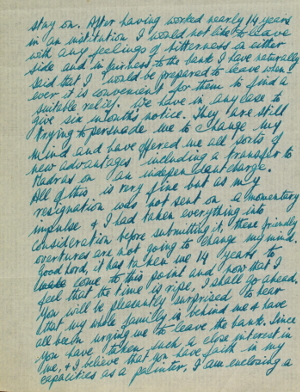 stay on. After having worked nearly 14 years
in an institution I would not like to leave
with any feelings of bitterness on either
side and in fairness to the bank I have naturally
said that I would be prepared to leave when
ever it is convenient for them to find a
suitable relief. We have in any case to
give six months notice. They are still
trying to persuade me to change my
mind and have offered me all sorts of
new advantages including a transfer to
Madras on an independent charge.
All of this is very fine but as my
resignation was not sent on a momentary
impulse & I had taken everything into
consideration before submitting it, these friendly
overtures are not going to change my mind.
Good Lord, it has taken me 14 years to
come to this point and now that I
feel that the time is ripe, I shall go ahead.
You will be pleasantly surprised to hear
that my whole family is behind me & have
all been urging me to leave the bank. Since
you have taken such a close interest in
me, & I believe that you have faith in my
capacities as a painter, I am enclosing a